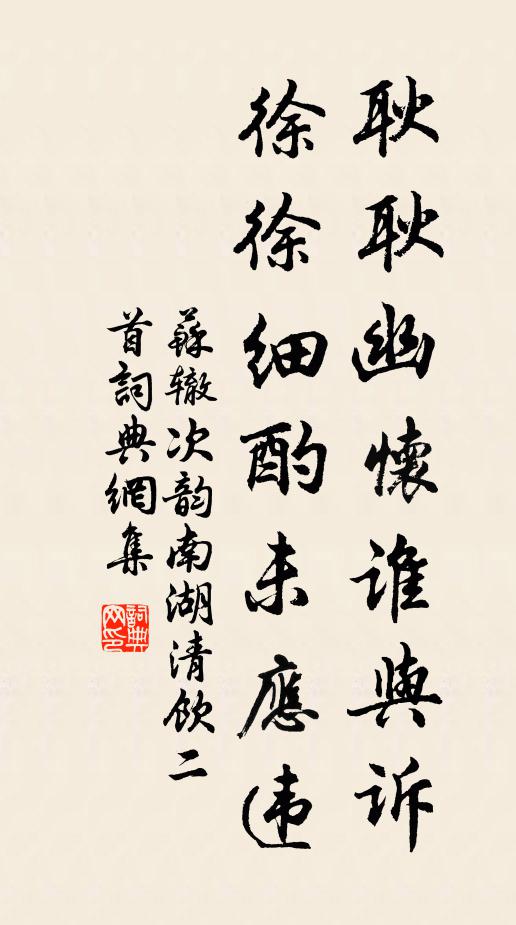 耿耿幽懷谁與訴
徐徐细酌未應违
蘇辙次韵南湖清飲二
首詞典網集
詞典网印